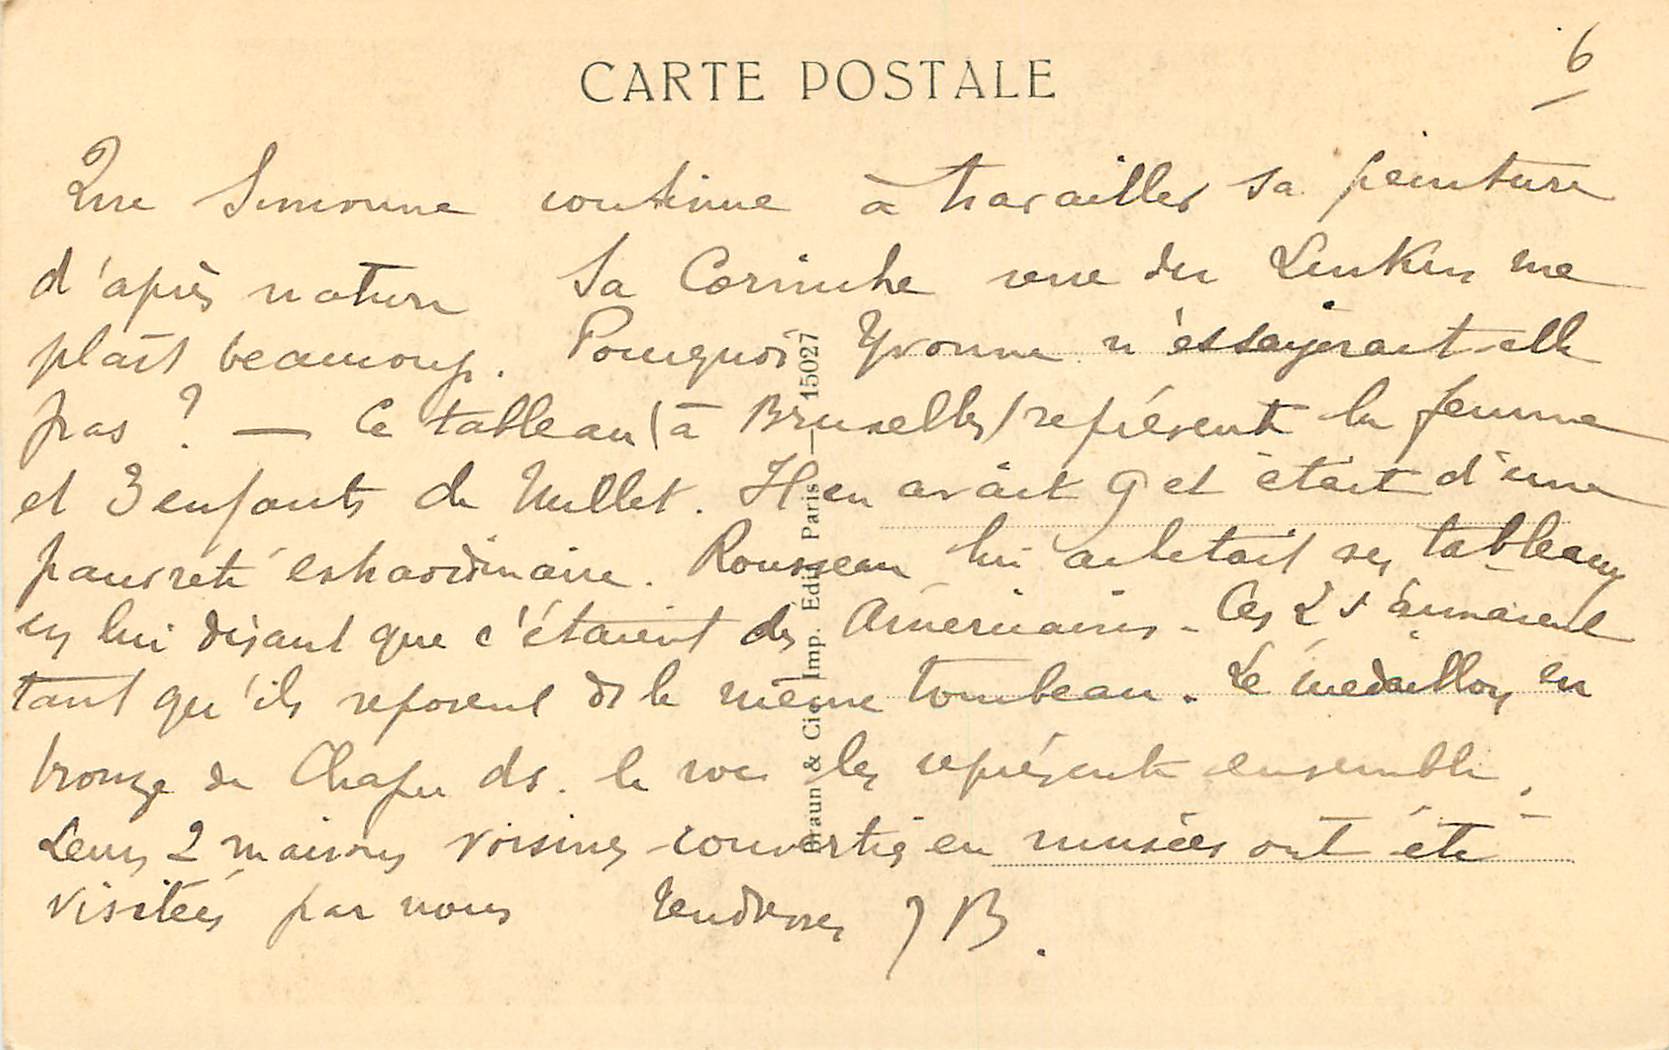 CARTE POSTALE
6
Que Simonne continue à travailler sa peinture
d'après nature Sa Corniche vue du me
plaît beaucoup. Pourquoi Yvonne n'essayerait-elle
pas ? — Ce tableau (à Bruxelles) représente la femme
et 3 enfants de Millet. Il en avait 9 et était d'une
pauvreté extraordinaire. Rousseau lui achetait ses tableaux
en lui disant que c'étaient des Américains - Ces 2 s'aimaient
tant qu'ils reposent ds le même tombeau. Le médaillon en
bronze de Chapu ds. le roc les représente ensemble.
Leurs 2 maisons voisines converties en musées ont été
visitées par nous Tendresses JB.
Braun & Cie Imp. Edit. Paris — 15027